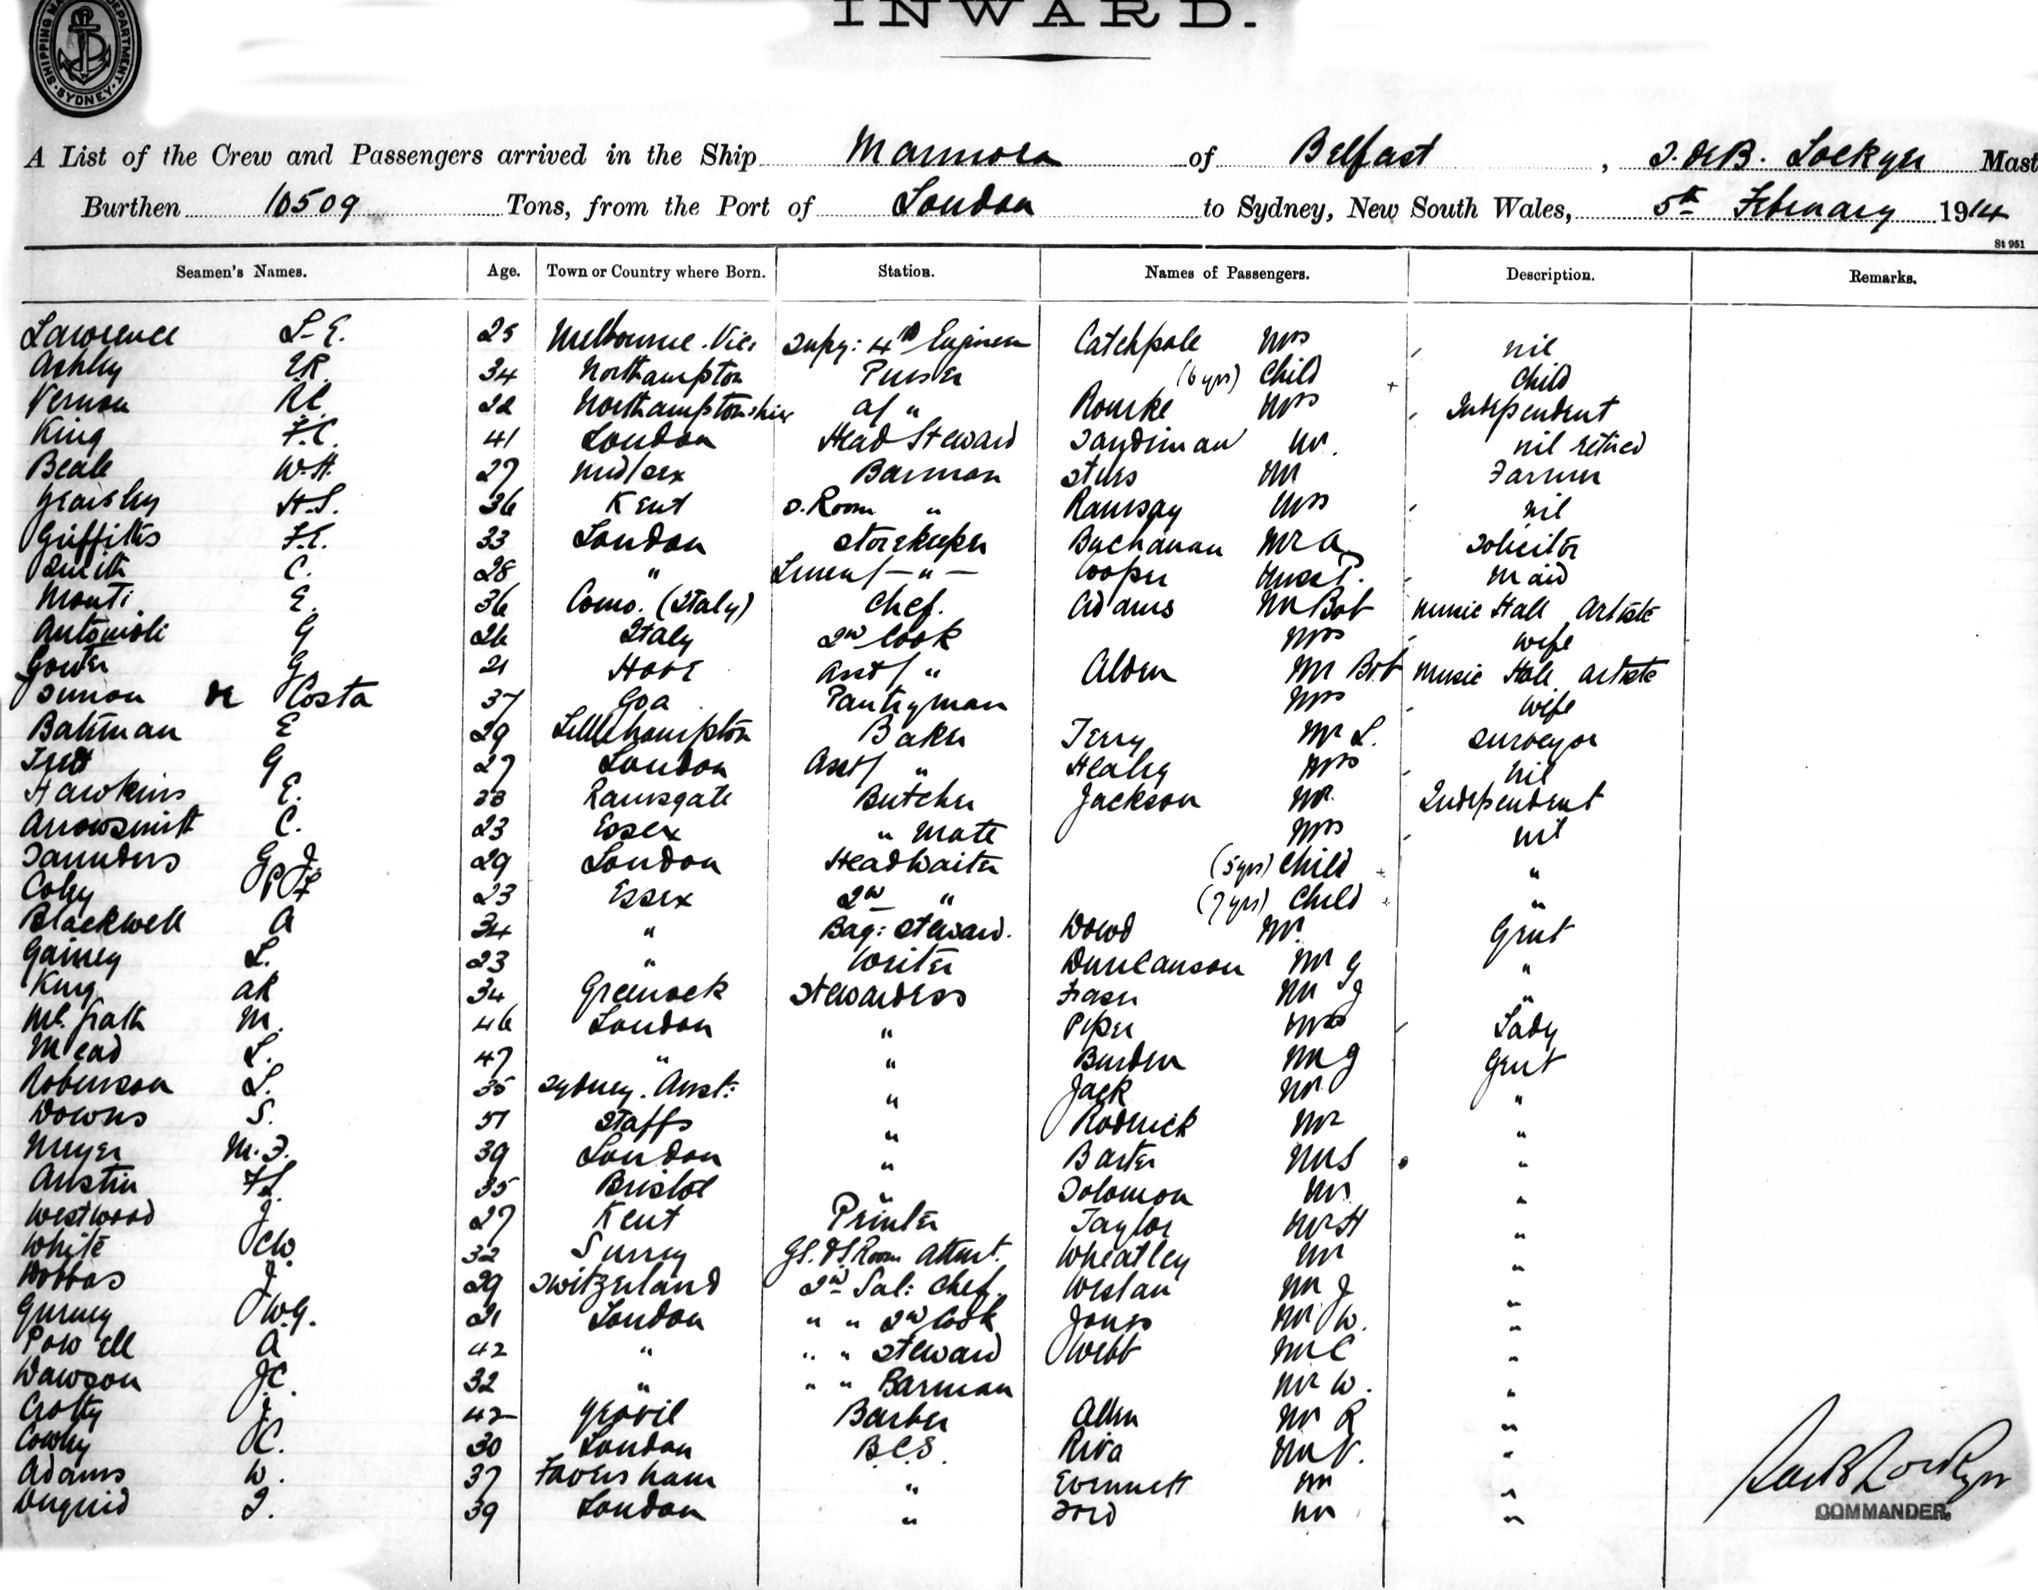 INWARD.
SHIPPING DEPARTMENT SYDNEY
A List of the Crew and Passengers arrived in the Ship Marmora of Belfast, Lockyer Mast
Burthen 10509 Tons, from the Port of London to Sydney, New South Wales, 5th February 1914
St 951
Seamen's Names. Age. Town or Country where Born. Station. Names of Passengers. Description. Remarks.
Lawrence L.E. 25 Melbourne. Vic: supy: 4th Engineer Catchpole Mrs nil
Ashby E.R. 34 Northampton Purser (6 yrs) Child Child
Vernon R.C. 22 Northamptonshire a/ " Rourke Mrs Independent
King F.C. 41 London Head Steward Sandiman Mr. nil retired
Beale W.H. 27 Mid/sex Barman Stiles Mr Farmer
Yearsley H.S. 36 Kent S. Room " Ramsay Mrs nil
Griffiths F.E. 33 London Storekeeper Buchanan Mr A Solicitor
Smith C. 28 " Linen/ - " - Cooper Miss T. Maid
Monti E. 36 Como. (Italy) Chef. Adams Mr Bob Music Hall Artiste
G 26 Italy 2nd Cook Mrs wife
G 21 Hove Asst/ " Alden Mr Bob Music Hall Artiste
Simon de Costa 37 Goa Pantryman Mrs wife
Bateman E 29 Littlehampton Baker Terry Mr L. Surveyor
G 27 London Asst/ " Healey Mrs nil
Hawkins E. 33 Ramsgate Butcher Jackson Mr. Independent
Arrowsmith C. 23 Essex " Mate Mrs nil
Saunders G J 29 London Headwaiter (5 yrs) Child "
Coley P F 23 Essex 2nd " (7 yrs) Child "
Blackwell A 34 " Bag: Steward. Dowd Mr. Gent
Gainey L. 23 " Writer Duncanson Mr G "
King AR 34 Greenock Stewardess Fraser Mr J "
McGrath M. 46 London " Piper Mrs Lady
Mead L. 47 " " Burden Mr G Gent
Robinson L. 35 Sydney. Aust: " Jack Mr "
Downs S. 51 Staffs " Roderick Mr "
Meyer M.F. 39 London " Baxter Mr S "
Austin F.L. 35 Bristol " Solomon Mr "
Westwood J 27 Kent Printer Taylor Mr H "
White CW 32 Surrey Room Attent. Wheatley Mr "
Dobbas J. 29 Switzerland 2nd Sal: Chef. Weslau Mr J "
Gurney W.G. 21 London " " 2nd Cook Jones Mr W. "
Powell A 42 " " " Steward Webb Mr C "
Dawson J.C. 32 " " " Barman Mr W. "
Crotty J. 42 Yeovil Barber Allen Mr R "
Cowley C. 30 London B.C.S. Riva Mr V. "
Adams W. 37 Faversham " Emmett Mr "
Duguid J. 39 London " Ford Mr "
COMMANDER.